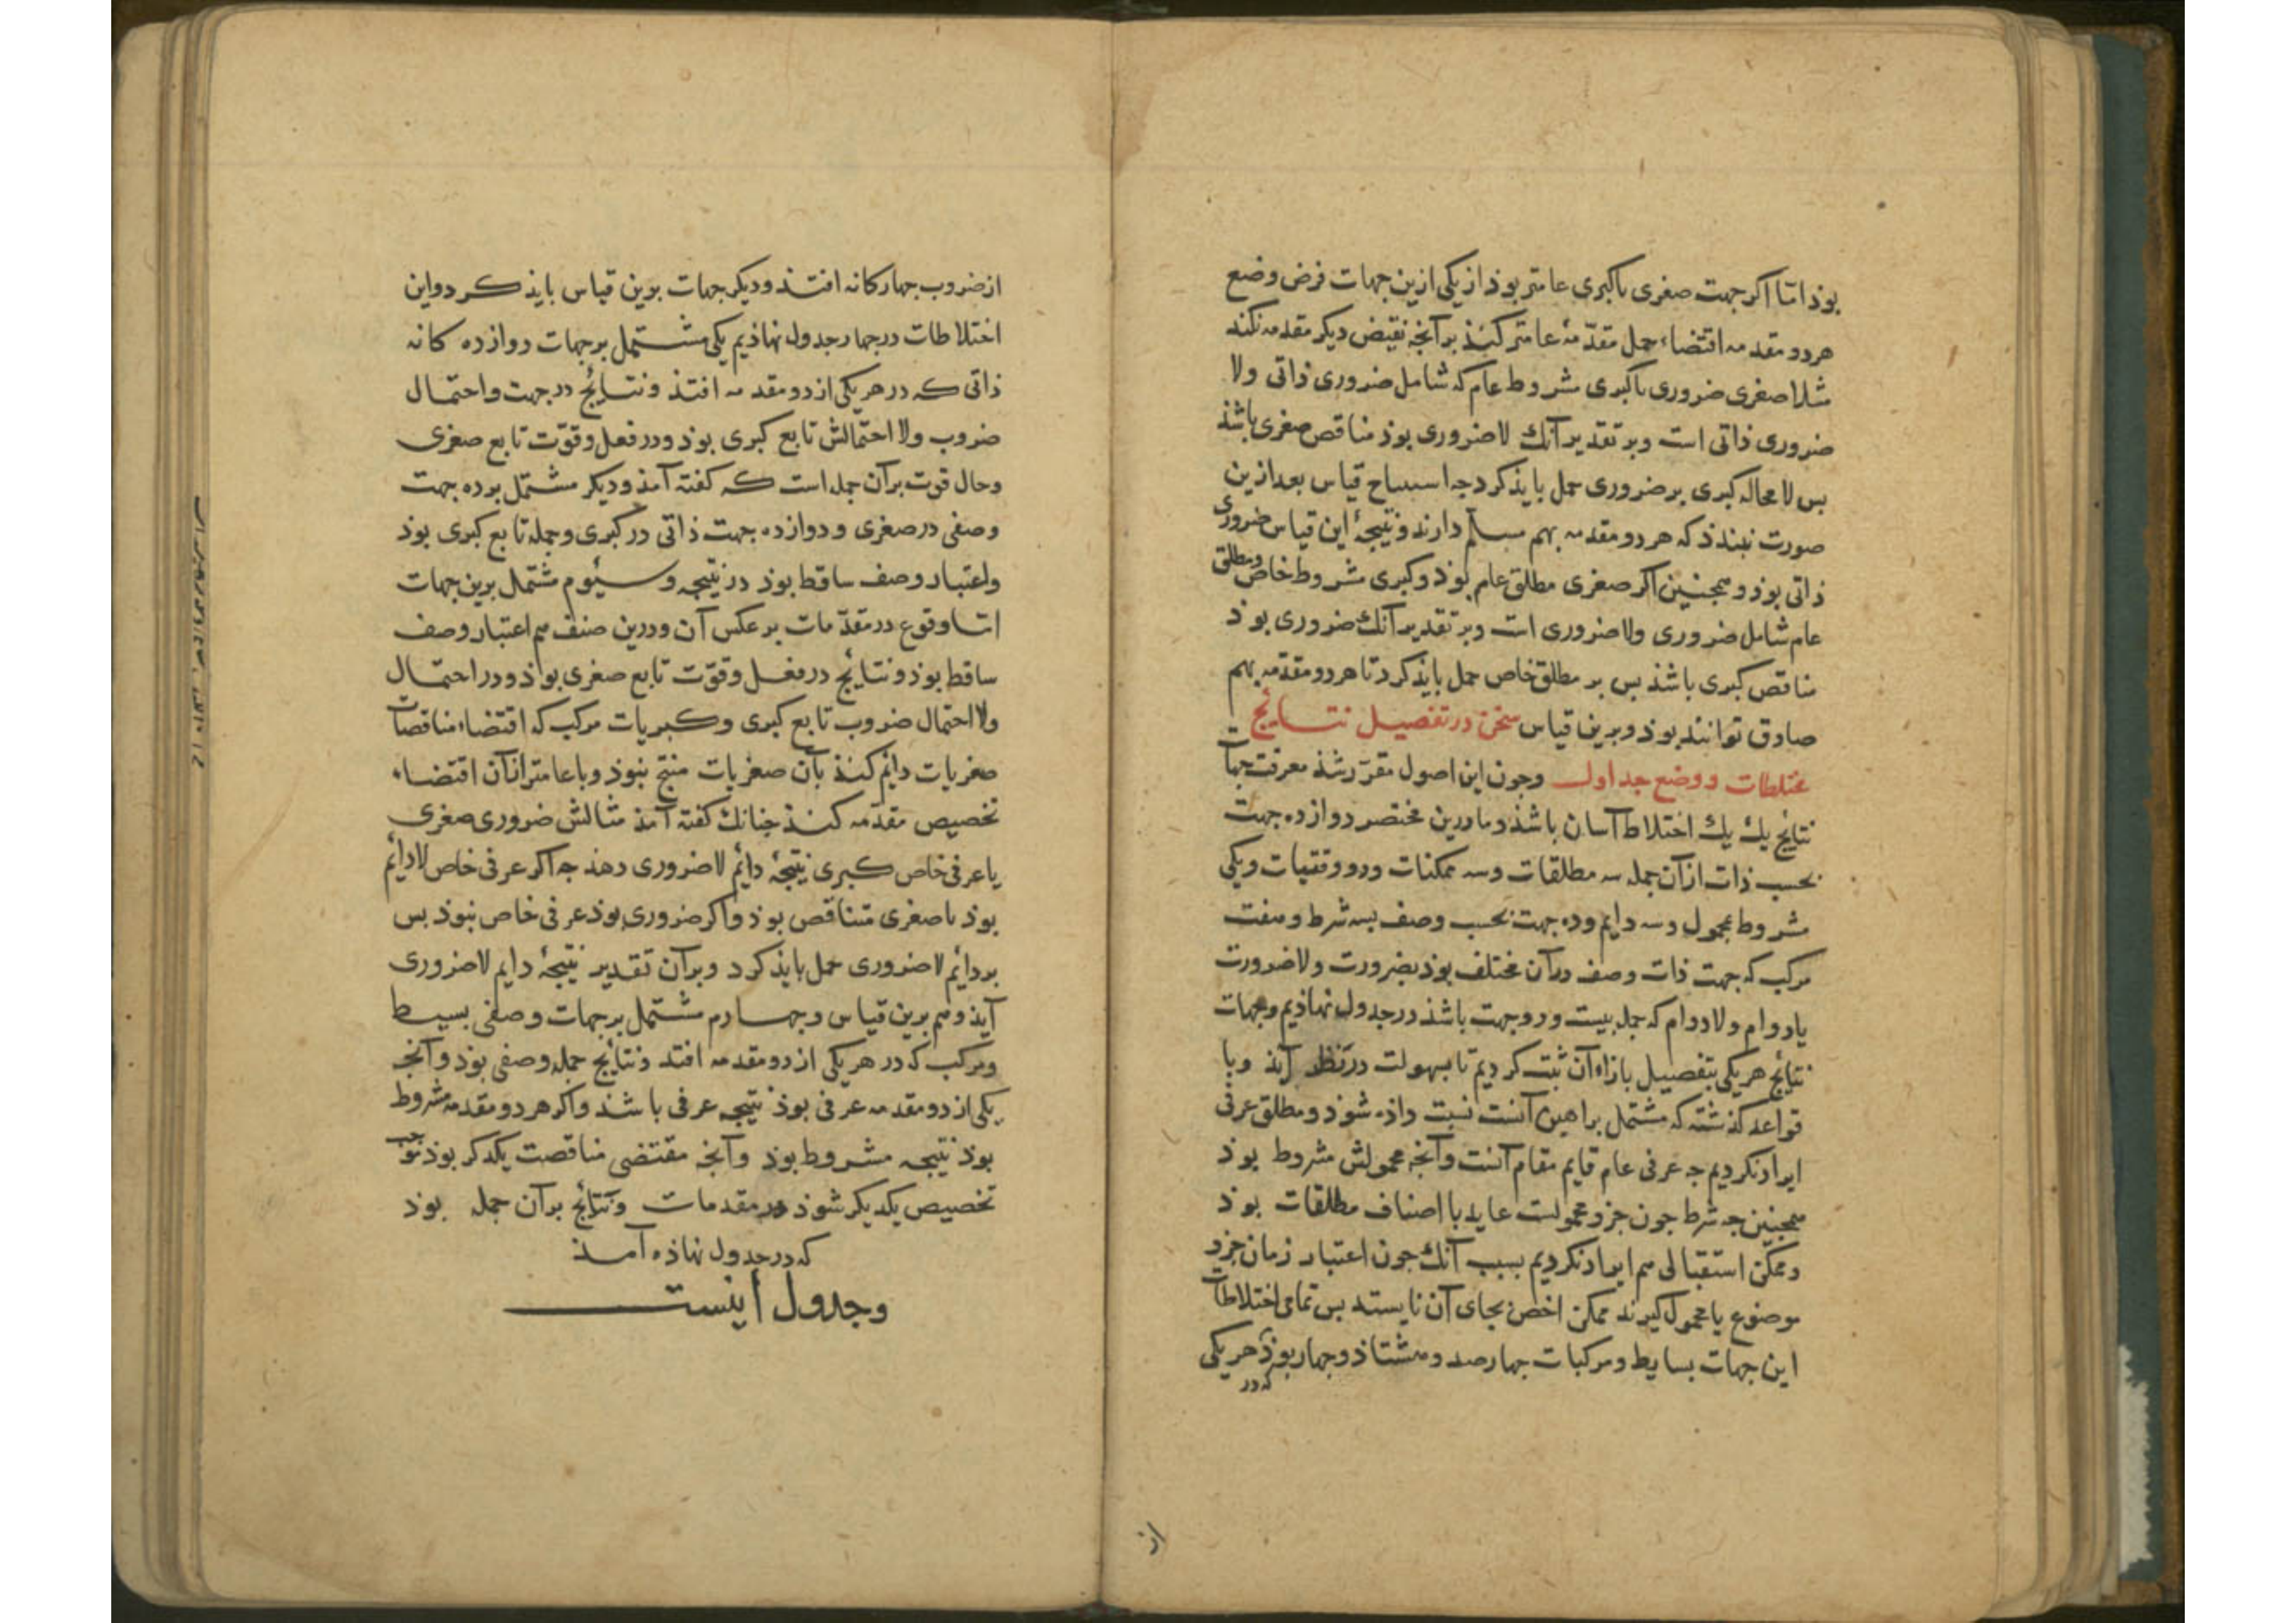 بوذ اما اکر جهت صغری یا کبری عامتر بوذ از یکی ازین جهات فرض وضع
هر دو مقدمه اقتضاء حمل مقدّمهٔ عامتر کنذ بر آنچه نقیض دیکر مقدمه نکند
مثلا صغری ضروری با کبری مشروط عام که شامل ضروری ذاتی ولا
ضروری ذاتی است و بر تقدیر آنک لاضروری بوذ مناقض صغری باشذ
بس لا محاله کبری بر ضروری حمل بایذ کرد جه استنتاج قیاس بعد ازین
صورت نبندذ که هر دو مقدمه بهم مسلم دارند و نتیجهٔ این قیاس ضروری
ذاتی بوذ و همجنین اکر صغری مطلق عام بوذ و کبری مشروط خاص و مطلق
عام شامل ضروری ولاضروری است و بر تقدیر آنک ضروری بوذ
مناقض کبری باشذ بس بر مطلق خاص حمل بایذ کرد تا هر دو مقدّمه بهم
صادق توانند بوذ و برین قیاس سخن در تفصیل نتایج
مختلطات و وضع جداول وجون این اصول مقرّر شذ معرفت جهات
نتایج یک یک اختلاط آسان باشذ و ما درین مختصر دوازده جهت
بحسب ذات از آن جمله سه مطلقات وسه ممکنات ودو وقتیات ویکی
مشروط بمحمول وسه دایم وده جهت بحسب وصف بسه شرط وهفت
مرکب که جهت ذات وصف در آن مختلف بوذ بضرورت ولاضرورت
یا دوام ولادوام که جمله بیست ودو جهت باشذ در جدول نهاذیم وجهات
نتایج هر یکی بتفصیل بازاء آن ثبت کردیم تا بسهولت در نظر آیذ وبا
قواعد کذشته که مشتمل براهین آنست نسبت داذه شوذ و مطلق عرفی
ایراد نکردیم جه عرفی عام قایم مقام آنست وآنجه محمولش مشروط بوذ
همجنین جه شرط جون جزو محمولست عاید با اصناف مطلقات بوذ
وممکن استقبالی هم ایراد نکردیم بسبب آنک جون اعتبار زمان جزو
موضوع یا محمول کیرند ممکن اخص بجای آن نایستد بس تمامی اختلاطات
این جهات بسایط ومرکبات جهارصد وهشتاذ وجهار بوذ هر یکی
که در
از
از ضروب جهارکانه افتذ ودیکر جهات برین قیاس بایذ کرد واین
اختلاطات در جهار جدول نهاذیم یکی مشتمل بر جهات دوازده کانه
ذاتی که در هر یکی از دو مقدمه افتذ ونتایج در جهت واحتمال
ضروب ولا احتمالش تابع کبری بوذ ودر فعل وقوّت تابع صغری
وحال قوت بر آن جمله است که کفته آمذ ودیکر مشتمل بر ده جهت
وصفی در صغری ودوازده جهت ذاتی در کبری وجمله تابع کبری بوذ
واعتبار وصف ساقط بوذ در نتیجه وسیُوم مشتمل برین جهات
امّا وقوع در مقدّمات بر عکس آن ودرین صنف هم اعتبار وصف
ساقط بوذ ونتایج در فعل وقوّت تابع صغری بوذ ودر احتمال
ولا احتمال ضروب تابع کبری وکبریات مرکب که اقتضاء مناقضات
صغریات دائم کنذ بآن صغریات منتج نبوذ وبا عامتر از آن اقتضاء
تخصیص مقدّمه کنذ جنانک کفته آمذ مثالش ضروری صغری
با عرفی خاص کبری نتیجهٔ دائم لاضروری دهذ جه اکر عرفی خاص لادائم
بوذ با صغری متناقض بوذ واکر ضروری بوذ عرفی خاص نبوذ بس
بر دائم لاضروری حمل بایذ کرد وبر آن تقدیر نتیجهٔ دایم لاضروری
آیذ وهم برین قیاس وجهارم مشتمل بر جهات وصفی بسیط
ومرکب که در هر یکی از دو مقدمه افتد ونتایج جمله وصفی بوذ وآنجه
یکی از دو مقدمه عرفی بوذ نتیجه عرفی باشذ واکر هر دو مقدمه مشروط
بوذ نتیجه مشروط بوذ وآنجه مقتضی مناقضت یکدکر بوذ
تخصیص یکدیکر شوذ در مقدمات ونتایج بر آن جمله بوذ
که در جدول نهاذه آمذ
وجدول اینست